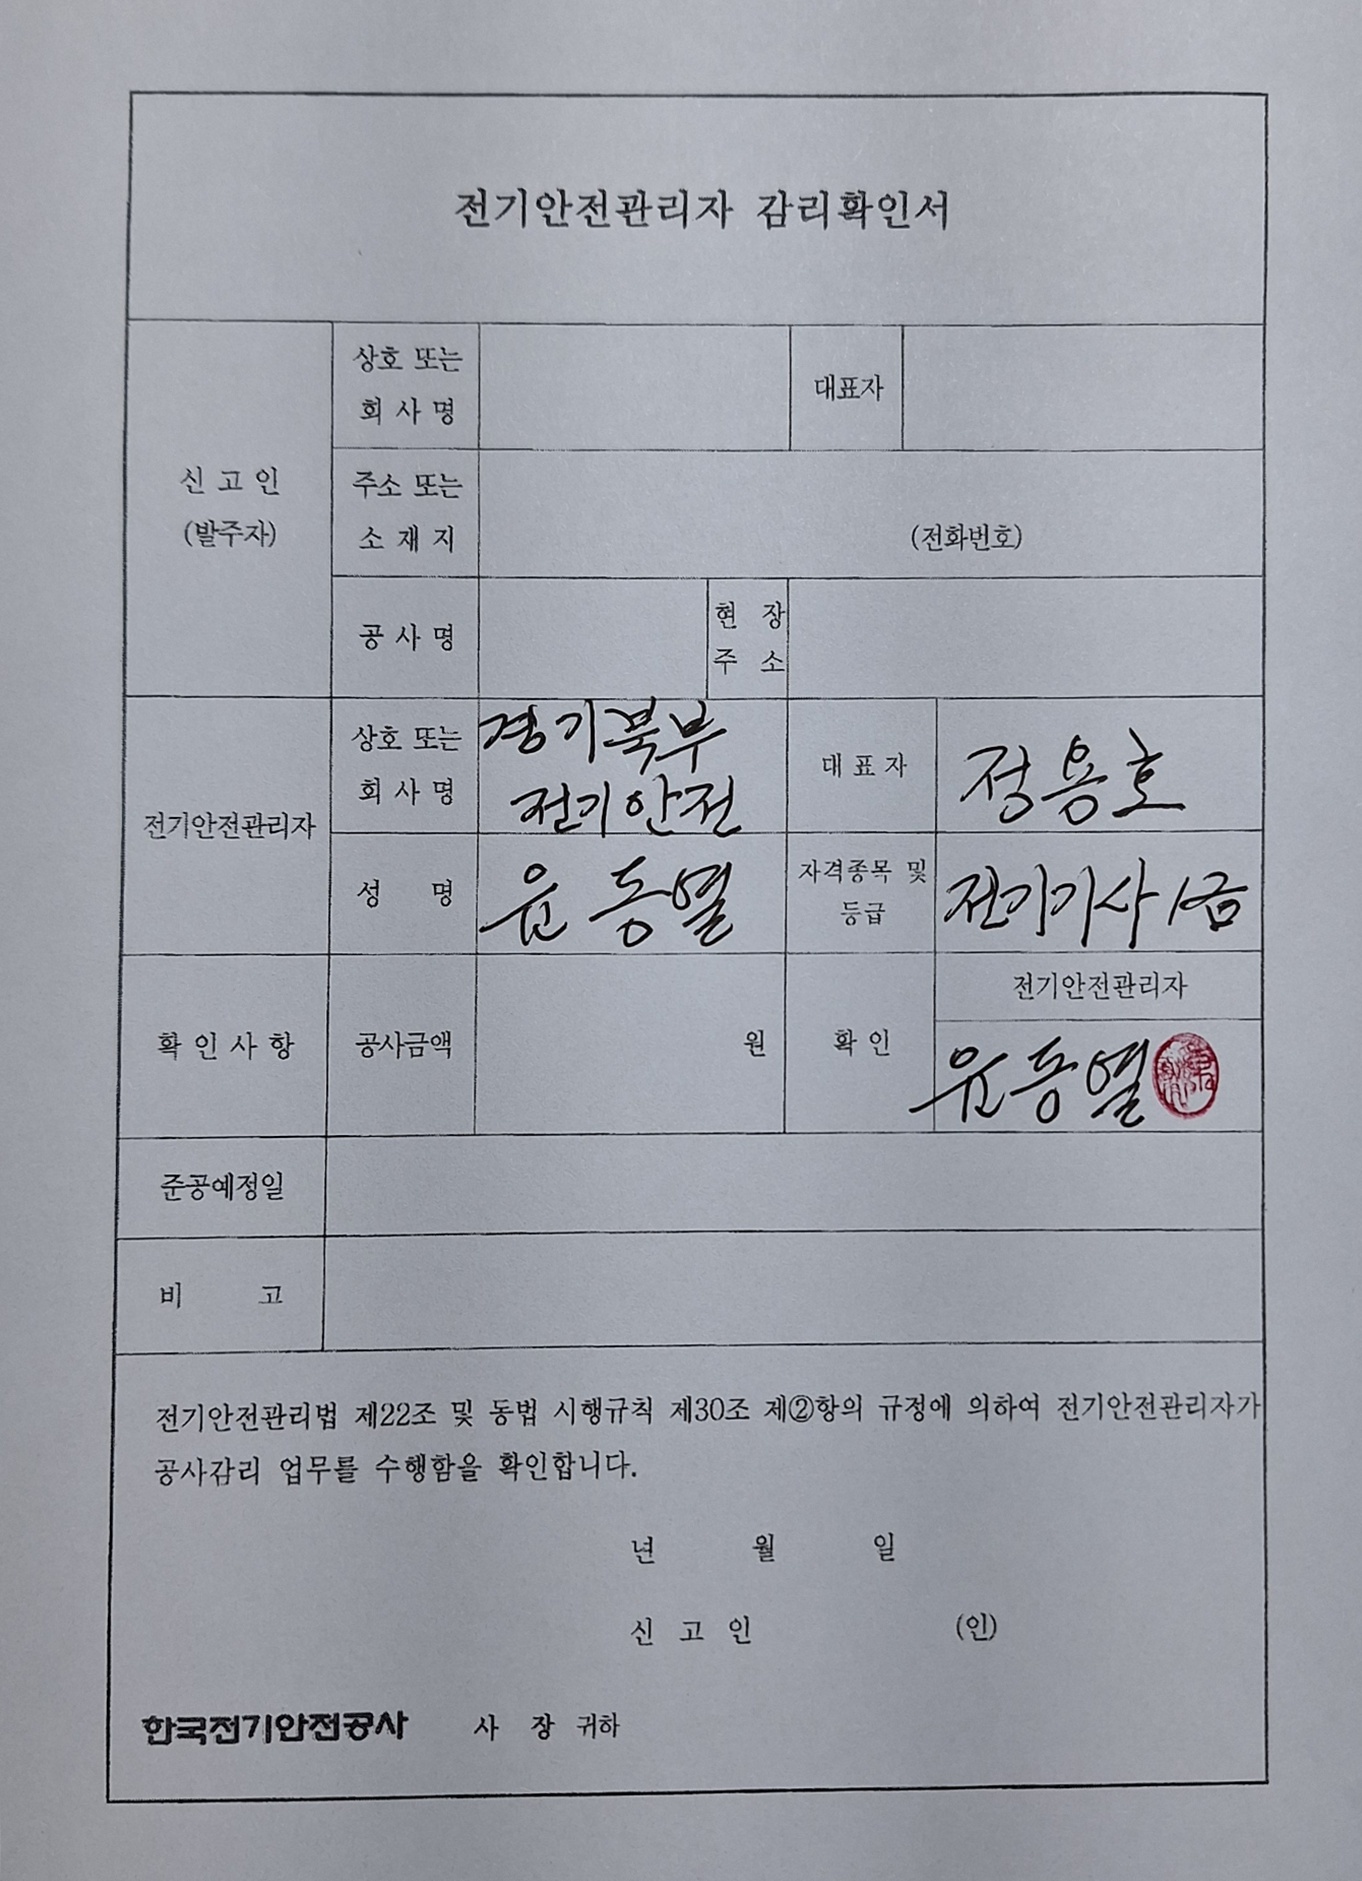 전기안전관리자 감리확인서
신고인
(발주자)
상호 또는
회 사 명
대표자
주소 또는
소 재 지
(전화번호)
공 사 명
현 장
주 소
전기안전관리자
상호 또는
회 사 명
경기북부
전기안전
대 표 자
정용호
성 명
윤동열
자격종목 및
등급
전기기사 1급
확 인 사 항
공사금액
원
확 인
전기안전관리자
윤동열
준공예정일
비 고
전기안전관리법 제22조 및 동법 시행규칙 제30조 제②항의 규정에 의하여 전기안전관리자가
공사감리 업무를 수행함을 확인합니다.
년 월 일
신 고 인 (인)
한국전기안전공사 사 장 귀하